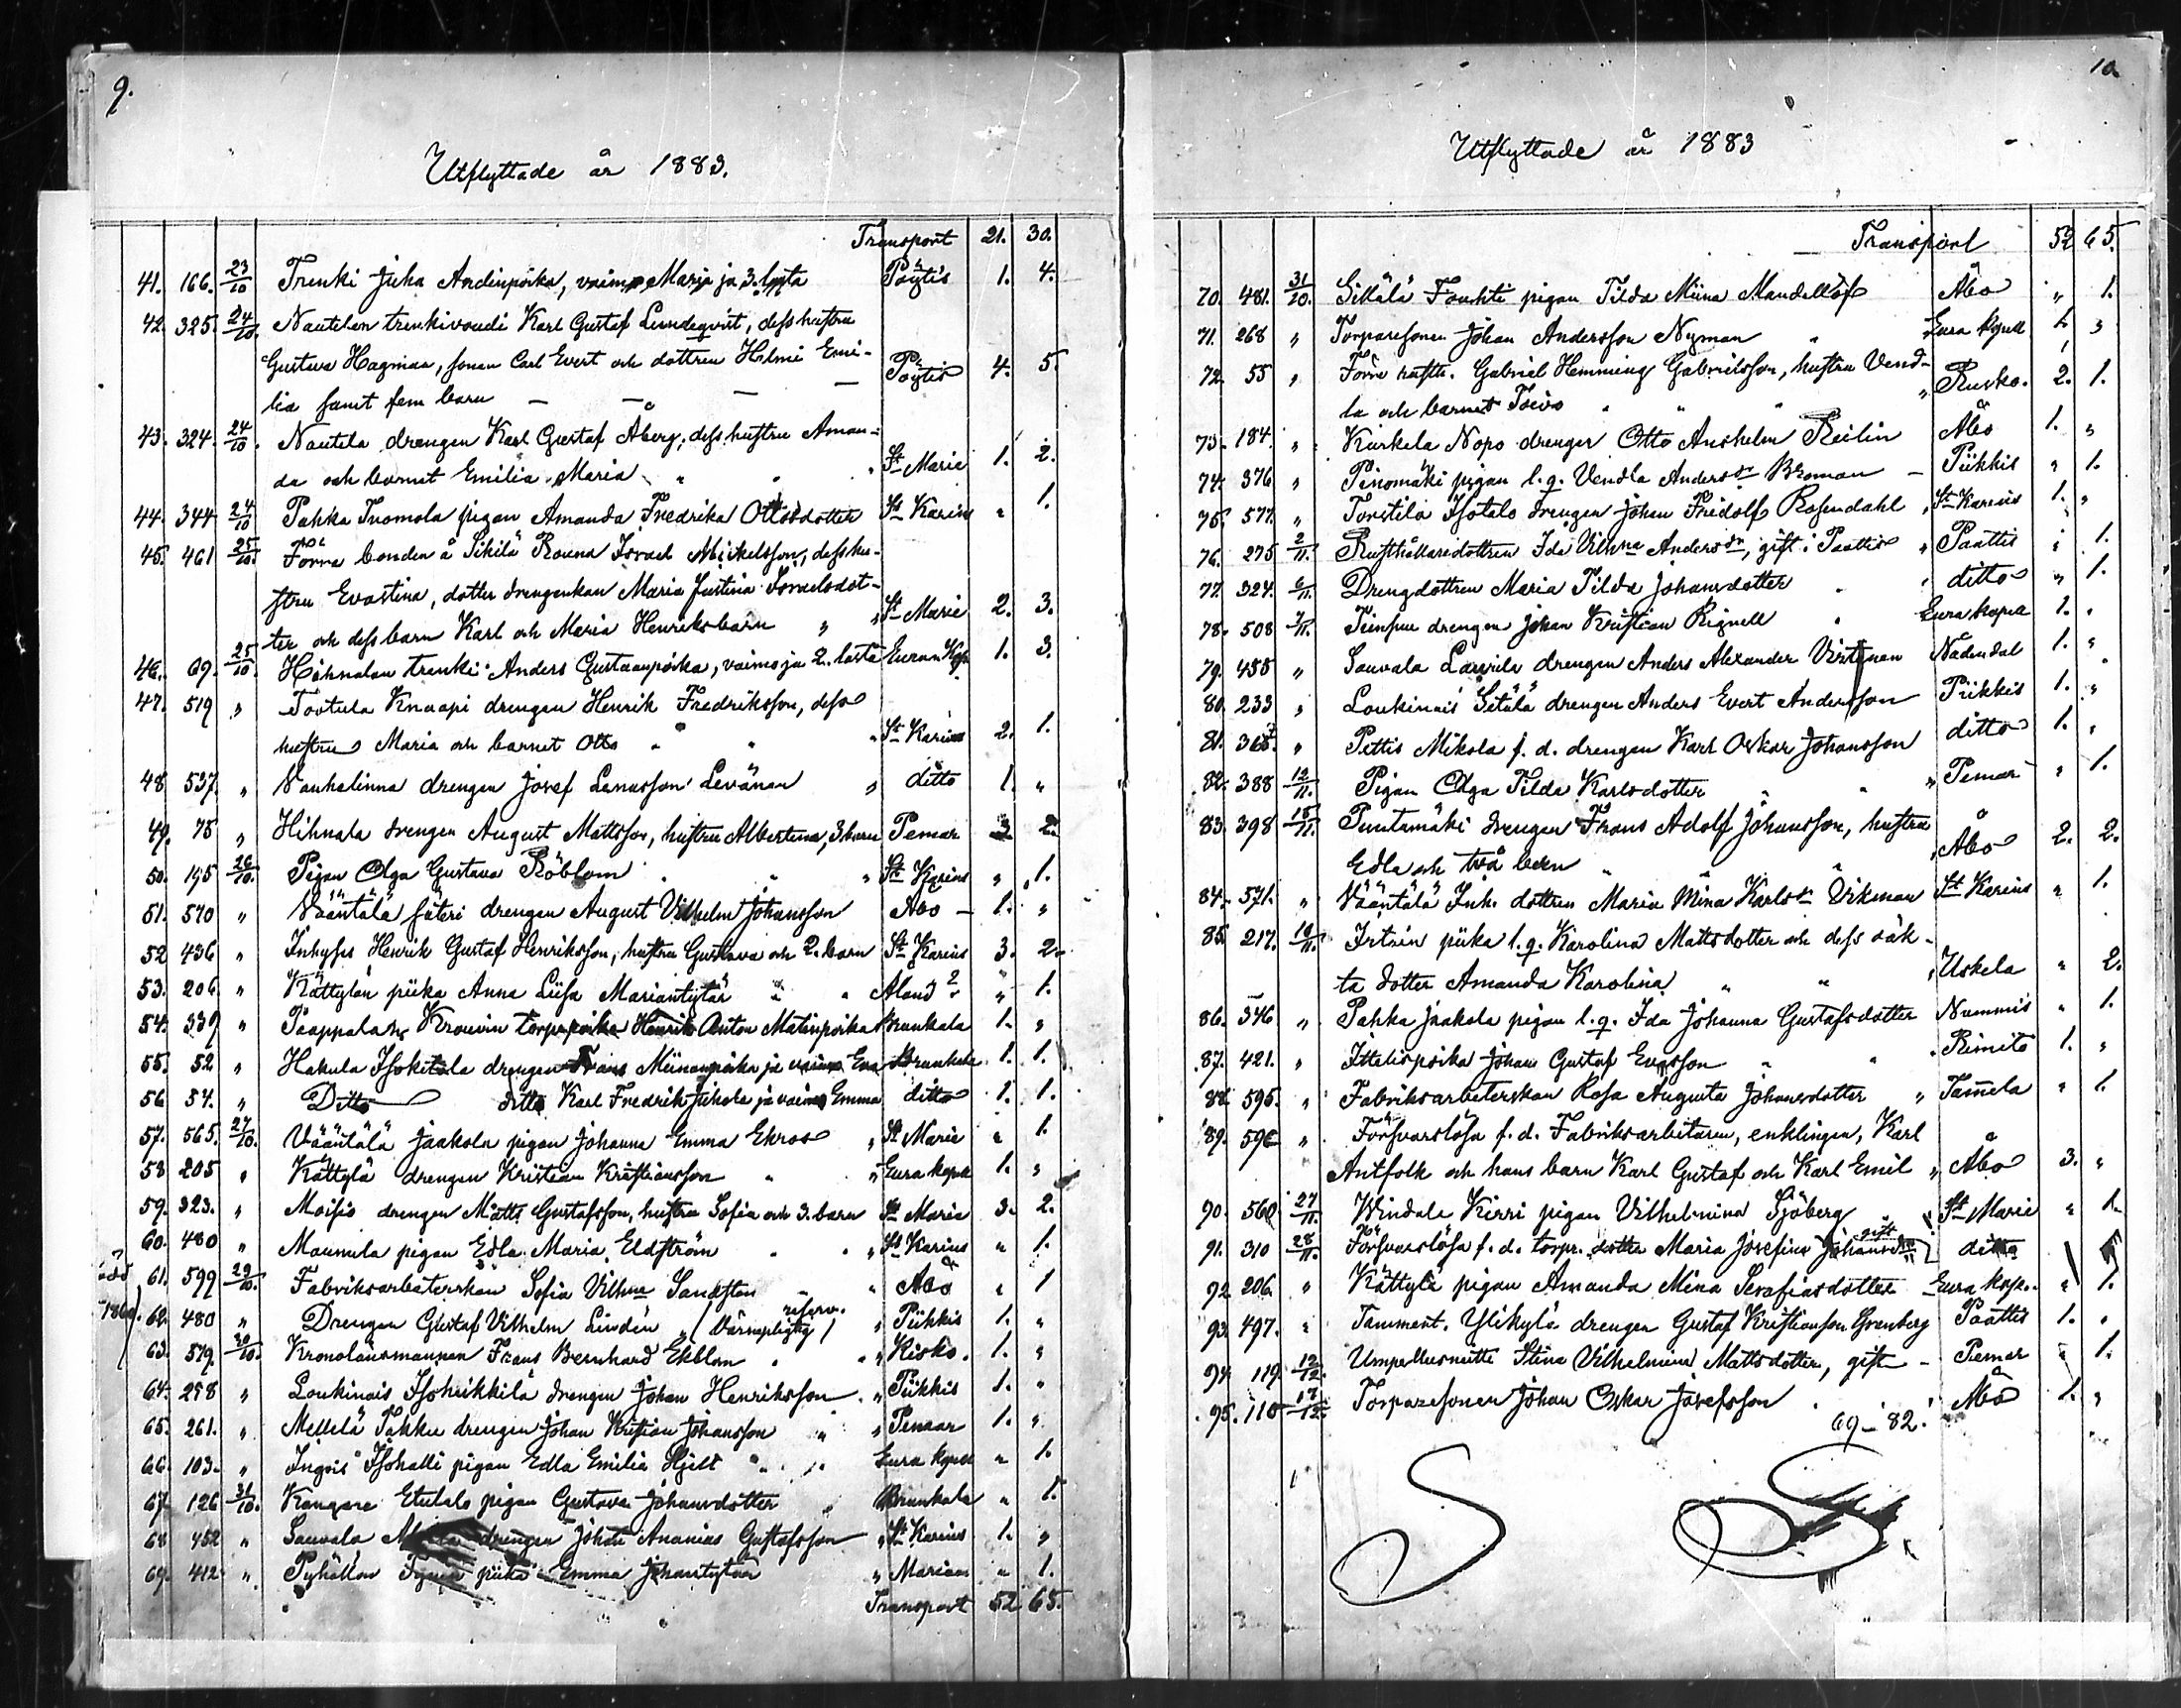 9.
Utflyttade år 1883.
Transport 21. 30.
41. 166. 23/10 Trenki Juha Andinpoika, vaimo Maria ja 3. lasta Pöytis 1. 4.
42. 325. 24/10. Nautelan trenkivoudi Karl Gustaf Lundeqvist, dess hustru
Gustava Hagman, sonen Carl Evert och dottren Helmi Emi-
lia samt fem barn — — — Pöytis 4. 5.
43. 324. 24/10. Nautela drengen Karl Gustaf Åberg, dess hustru Aman-
da och barnet Emilia Maria " " " St Marie 1. 2.
44. 344 24/10 Pahka Tuomola pigan Amanda Fredrika Ottosdotter St Karins " 1.
45. 461 25/10. Förra bonden å Sikilä Rouna Israel Mickelsson, dess hu-
stru Evastina, dotter drengenkan Maria Justina Israelsdot-
ter och dess barn Karl och Maria Henriksbarn " " St Marie 2. 3.
46. 69. 25/10. Hihnalan trenki Anders Gustaanpoika, vaimo ja 2. lasta Euran Kap. 1. 3.
47. 519 " Tortula Knaapi drengen Henrik Fredriksson, dess
hustru Maria och barnet Otto " " " St Karins 2. 1.
48 537. " Vanhalinna drengen Josef Lenusson Levänen " ditto 1. "
49. 75 " Hihnala drengen August Mattsson, hustru Albertina, 3 barn Pemar 3 2.
50. 195 26/10. Pigan Olga Gustava Röblom " " " St Karins " 1.
51. 570 " Vääntälä säteri drengen August Vilhelm Johansson Åbo — 1. "
52 436 " Inhyses Henrik Gustaf Henriksson, hustru Gustava och 2. barn St Karins 3. 2.
53. 206 " Kättylän piika Anna Liisa Mariantytär " " Åland ? " 1.
54. 339 " Paappalan Krouvin torp.poika Henrik Anton Matinpoika Brunkala 1. "
55. 52 " Hakula Isokitala drengen Frans Miinanpoika ja vaimo Eva Brunkala 1. 1.
56 54. " Ditto ditto Karl Fredrik Juhola ja vaimo Emma ditto 1. 1.
57. 565. 27/10. Vääntälä Jaakola pigan Johanna Emma Ekroos " St Marie " 1.
58 205 " Kättylä drengen Kristian Kristiansson " " Eura kapell 1. "
59. 323. " Moisio drengen Matts Gustafsson, hustru Sofia och 3. barn St Marie 3. 2.
60. 480 " Maunula pigan Edla Maria Eldström " " " St Karins " 1.
61. 599 29/10. Fabriksarbeterskan Sofia Vilhna Sandsten " " Åbo " 1
1860
62. 480 " Drengen Gustaf Vilhelm Lindén " (Värnepligtig reserv.) " Piikkis 1. "
63. 579. 30/10. Kronolänsmannen Frans Bernhard Ekblom " " " Kisko. 1. "
64. 258 " Loukinais Isohiikkilä drengen Johan Henriksson " Piikkis 1. "
65. 261. " Mellilä Takku drengen Johan Kristian Johansson " " Pemar 1. "
66. 103. " Ingois Isohalli pigan Edla Emilia Hjelt " " Eura kapell " 1.
67. 126 31/10. Kangare Etutalo pigan Gustava Johansdotter " Brunkala " 1.
68 452 " Sauvala drengen Johan Ananias Gustafsson " St Karins 1. "
69. 412 " Pyhältön piika Emma Johantytär " Marian " 1.
Transport 52 65.
10.
Utflyttade år 1883
Transport 52 65.
70. 481. 31/10. Sikälä Fouhti pigan Tilda Miina Mandellöf Åbo " 1.
71. 268 " Torparesonen Johan Andersson Nyman " Eura kapell 1. "
72. 55 " Förre rusth. Gabriel Hemming Gabrielsson, hustru Vend-
la och barnet Toivo " " " " Rusko. 2. 1.
73. 184. " Kurkela Nopo drengen Otto Anshelm Reilin Åbo 1. "
74. 376 " Pinomäki pigan l.q. Vendla Andersdr Broman — Piikkis " 1.
75. 577. " Torstila Isotalo drengen Johan Fridolf Rosendahl " St Karins 1. "
76. 275 2/11. Rusthållaredottren Ida Vilhna Andersdr, gift i Paattis " Paattis " 1.
77. 324. 6/11. Drengdottren Maria Tilda Johansdotter " " ditto " 1.
78. 508 7/11. drengen Johan Kristian Rignell " Eura kapell 1. "
79. 455 " Sauvala Laurila drengen Anders Alexander Virtanen Nådendal 1. "
80. 233 " Loukinais Sitälä drengen Anders Evert Andersson Piikkis 1. "
81. 365. " Pettis Mikola f. d. drengen Karl Oskar Johansson ditto 1. "
82. 388 12/11. Pigan Olga Tilda Karlsdotter " " " Pemar " 1.
83. 398 15/11. Puntamäki drengen Frans Adolf Johansson, hustru
Edla och två barn " " " Åbo 2. 2.
84. 571. " Vääntälä Inh. dottren Maria Mina Karlsdr Vikman St Karins " 1.
85. 217. 19/11. piika l.q. Karolina Mattsdotter och dess oäk-
ta dotter Amanda Karolina " " " Uskela " 2.
86. 346 " Pahka Jaakola pigan l.q. Ida Johanna Gustafsdotter Nummis " 1.
87. 421. " Ittelispoika Johan Gustaf Evasson " " Rimito 1. "
88. 595. " Fabriksarbeterskan Rosa Augusta Johansdotter " Tamela " 1.
89. 596 " Försvarslösa f. d. Fabriksarbetaren, enklingen, Karl
Antfolk och hans barn Karl Gustaf och Karl Emil " Åbo 3. "
90. 560. 27/11. Windala Kirri pigan Vilhelmina Sjöberg " St Marie " 1.
91. 310 28/11. Försvarslösa f. d. torp. dotter Maria Josefina Johansdr gift ditto
92. 206. " Kättylä pigan Amanda Mina Serafiasdotter Eura kap. " 1.
93. 497. " Tamment. Ylikylä drengen Gustaf Kristianson Grenberg Paattis 1. "
94. 119. 12/12. Stina Vilhelmina Mattsdotter, gift — Pemar " 1.
95. 110 17/12. Torparesonen Johan Oskar Josefsson " Åbo 1. "
69 — 82.